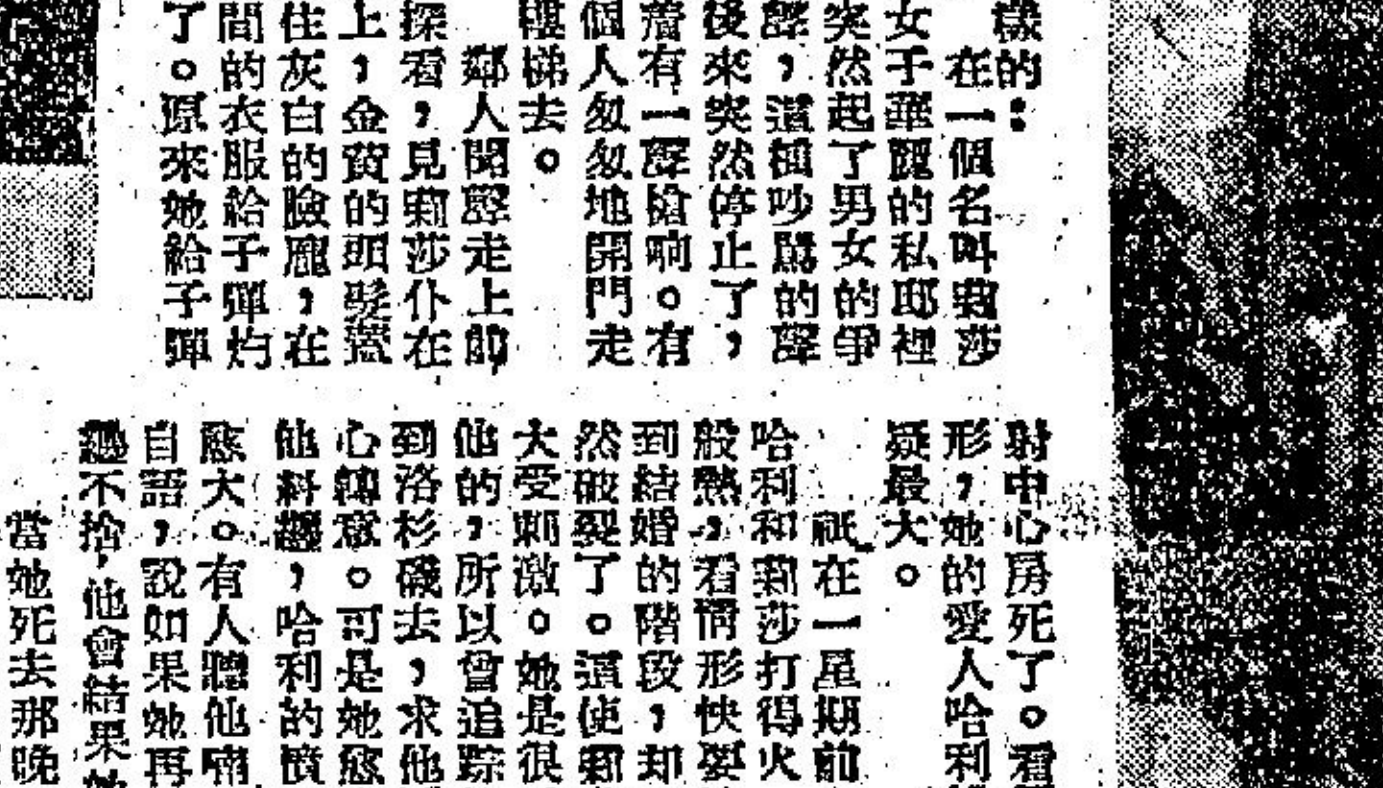 樣的：
在一個名叫莉莎
女子華麗的私邸裡
突然起了男女的爭
聲，這種吵罵的聲
後來突然停止了，
有一聲槍响。有
個人匆匆地開門走
樓梯去。
鄰人聞聲走上前
探看，見莉莎仆在
上，金黃的頭髮蓋
住灰白的臉龐，在
間的衣服給子彈灼
了。原來她給子彈
射中心房死了。看
形，她的愛人哈利
疑最大。
祇在一星期前
哈利和莉莎打得火
般熱，看情形快要
到結婚的階段，却
然破裂了。這使莉
大受刺激。她是很
他的，所以曾追踪
到洛杉磯去，求他
心轉意。可是她愈
他糾纏，哈利的憤
愈大。有人聽他喃
自語，說如果她再
不捨，他會結果她
當她死去那晚